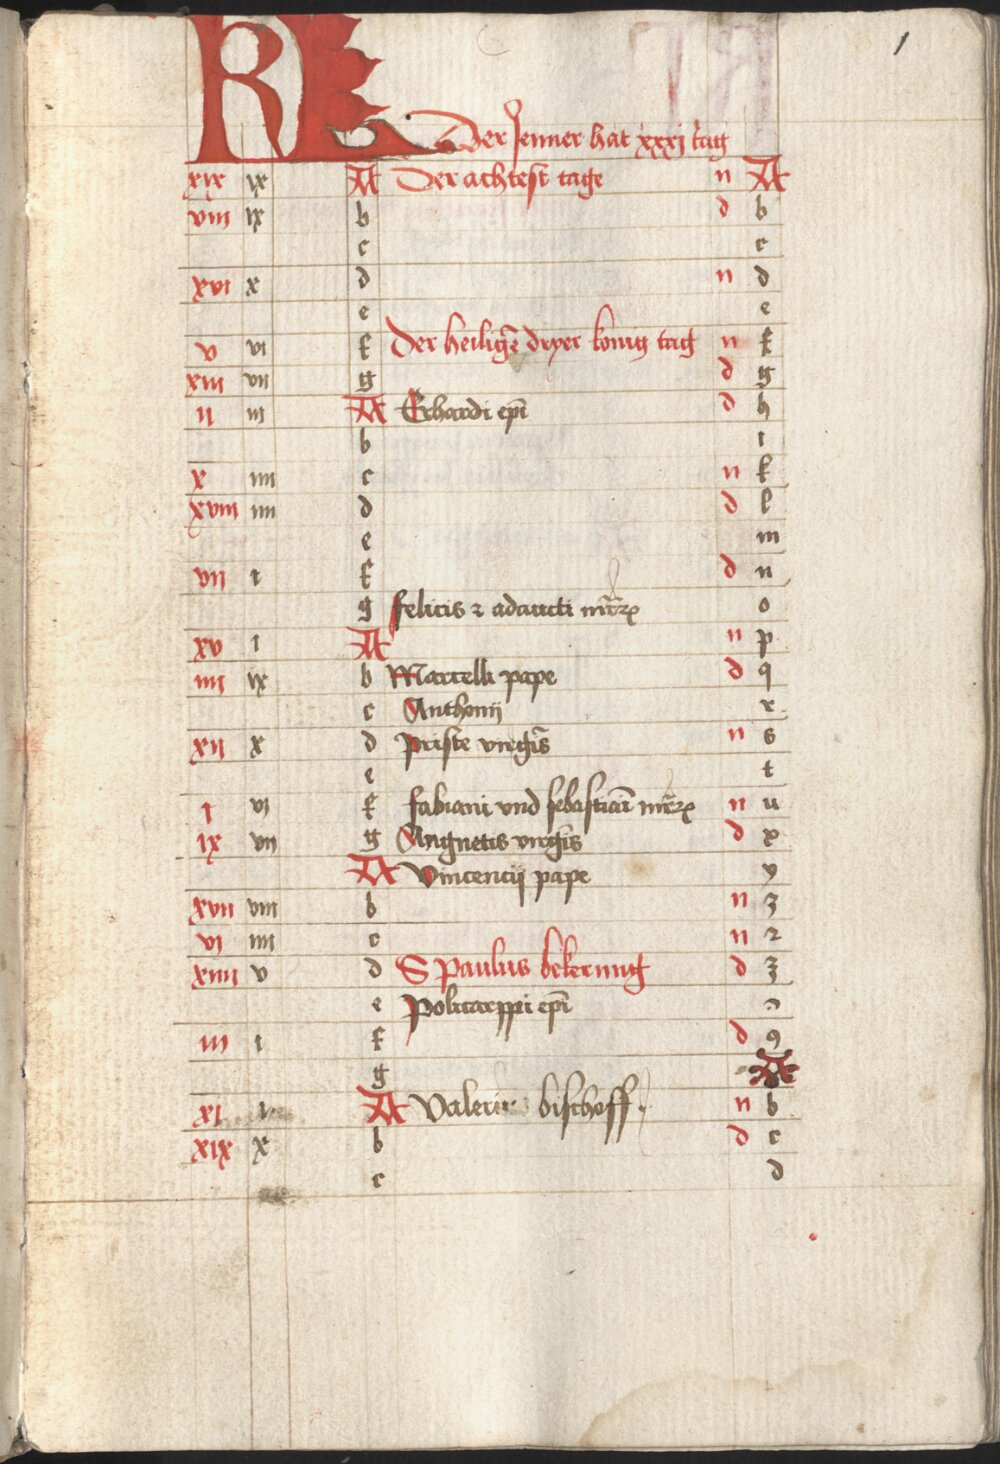 1
KL Der Jenner hat xxxj tag
xix ix A Der achtest tage n A
viii ix b d b
c c
xvi x d n d
e e
v vi f Der heilige̅ dryer konig tag n f
xiii vii g d g
ii iii A Erhardi ep̅i d h
b i
x iiii c n k
xviii iiii d d l
e m
vii i f d n
g felicis ⁊ adaucti o
xv i A n p
iiii ix b Marcelli pape d q
c Anthonij r
xii x d Prisce virgi̅s n s
e t
i vi f fabiani vnd sebastiani n u
ix vii g Angnetis virgi̅s d x
A Vincencij pape y
xvii viii b n z
vi iiii c n 2
xiiii v d S Paulus bekerung d ʒ
e Policarppi ep̅i ɔ
iii i f d 9
g A
xi A bischoff n b
xix x b d c
c d